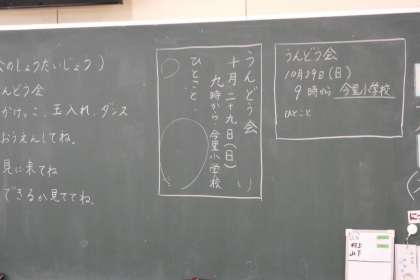 のしょうたいじょう）
んどう会
かけっこ、玉入れ、ダンス
おうえんしてね。
見に来てね
できるか見ててね。
うんどう会
十月二十九日（日）
九時から、今里小学校
ひとこと、
うんどう会
10月29日（日）
9時から 今里小学校
ひとこと
村上
山下